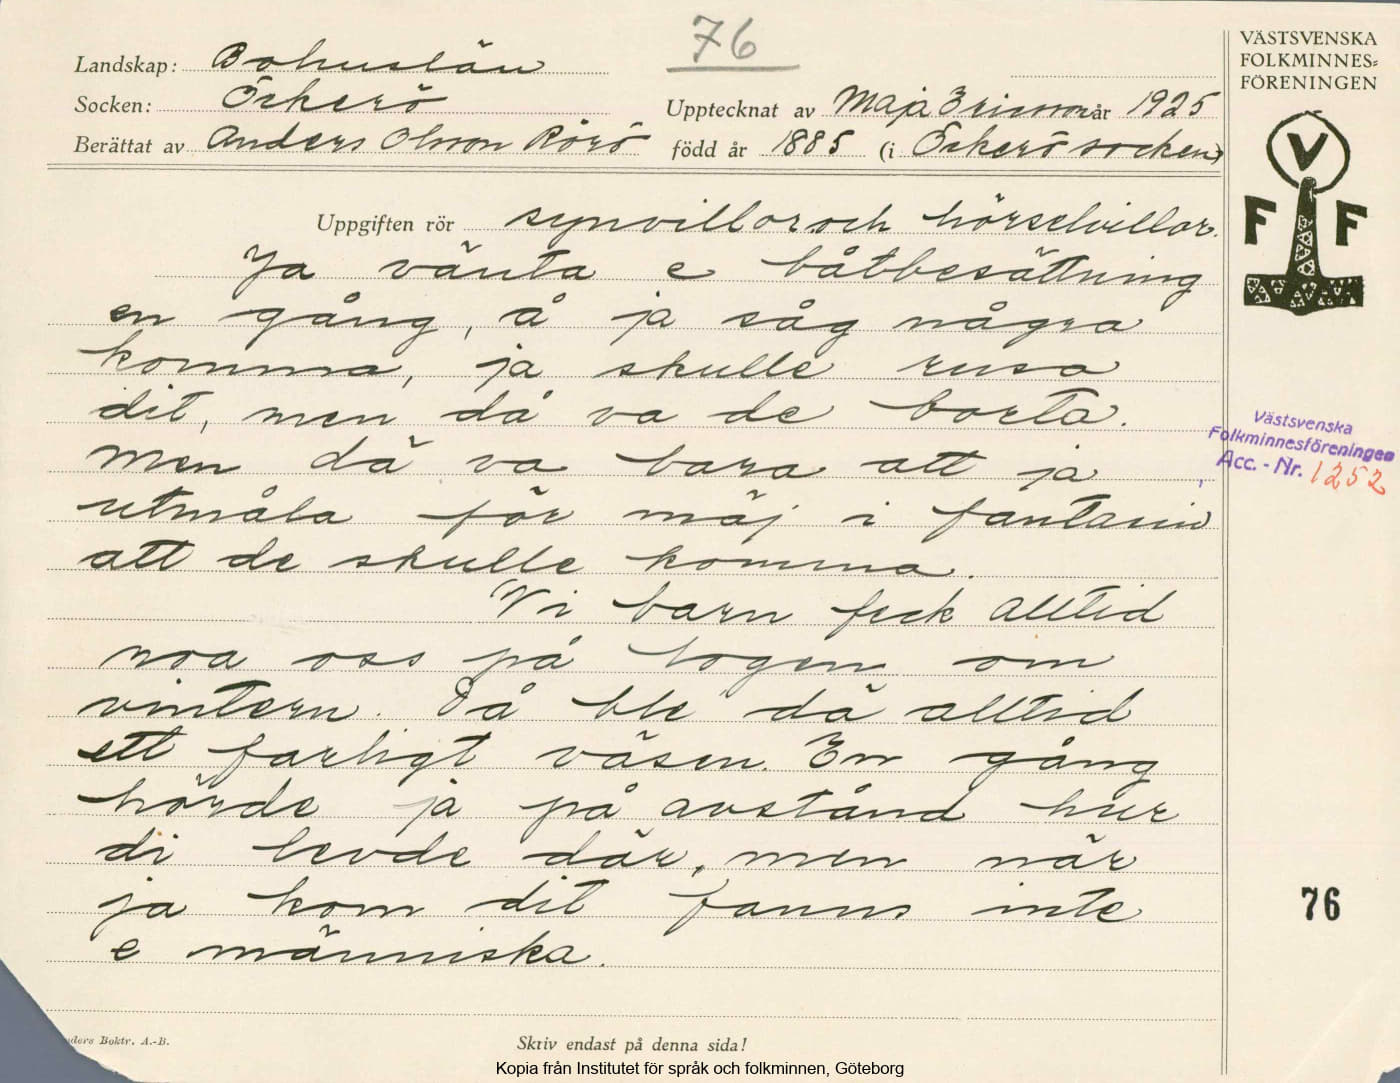 76
VÄSTSVENSKA
FOLKMINNES=
FÖRENINGEN
Landskap: Bohuslän
Socken: Öckerö
Upptecknat av Maja Ericsson år 1925
Berättat av Anders Olsson Rörö
född år 1885 (i Öckerö socken)
V
F F
Uppgiften rör synvillor och hörselvillor.
Ja vänta e båtbesättning
en gång, å ja såg några
komma, ja skulle rusa
dit, men då va de borta.
Men dä va bara att ja
utmåla för mäj i fantasin
att de skulle komma.
Vi barn feck alltid
roa oss på logen om
vintern. Då ble dä alltid
ett farligt väsen. En gång
hörde ja på avstånd hur
di levde där, men när
ja kom dit fanns inte
e människa.
Västsvenska
Folkminnesföreningen
Acc. - Nr. 1252
76
nders Boktr. A.-B.
Skriv endast på denna sida!
Kopia från Institutet för språk och folkminnen, Göteborg